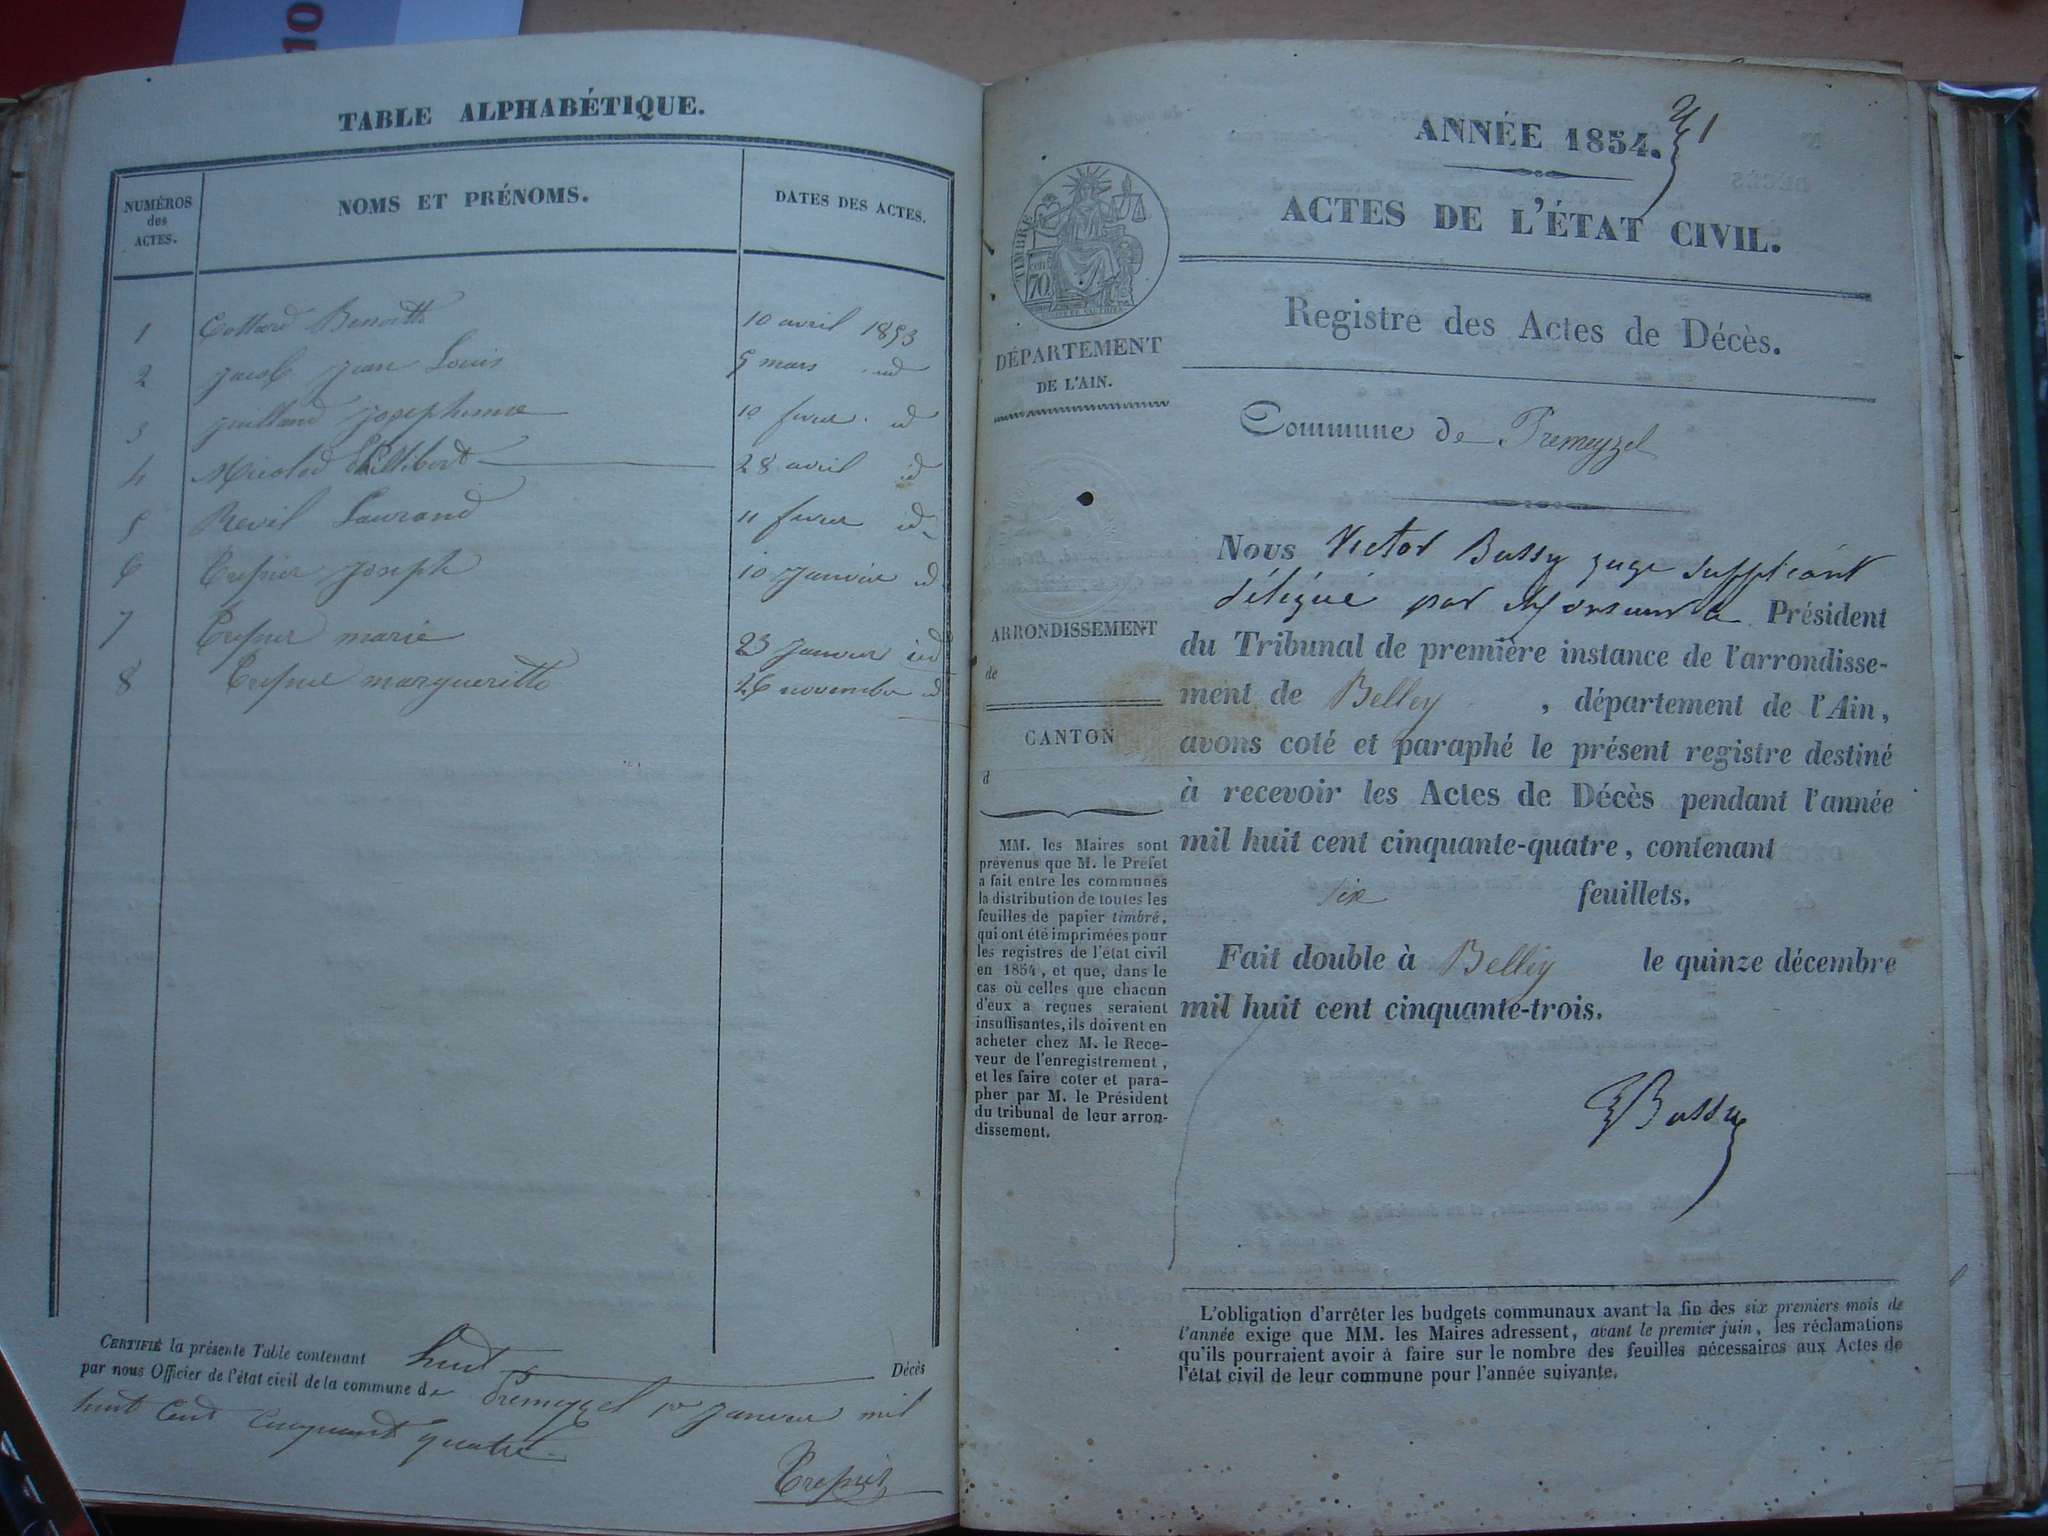 10
TABLE ALPHABÉTIQUE.
NUMÉROS
des
ACTES.
NOMS ET PRÉNOMS.
DATES DES ACTES.
1 Benoitte 10 avril 1853
2 Jacob Jean Louis 5 mars id
3 Juilland Josephinne 10 fevrer id
4 Philibert 28 avril id
5 Revil Laurand 11 fevrer id
6 Joseph 10 Janvier id
7 marie 23 Janvier id
8 margueritte 26 novembre id
CERTIFIÉ la présente Table contenant huit Décès
par nous Officier de l'état civil de la commune de Premeyzel 1er Janvier mil
huit Cent Cinquant quatre
ANNÉE 1854.
1
ACTES DE L'ÉTAT CIVIL.
Registre des Actes de Décès.
TIMBRE
70
DÉPARTEMENT
DE L'AIN.
ARRONDISSEMENT
de
CANTON
d
MM. les Maires sont
prévenus que M. le Préfet
a fait entre les communes
la distribution de toutes les
feuilles de papier timbré,
qui ont été imprimées pour
les registres de l'état civil
en 1854, et que, dans le
cas où celles que chacun
d'eux a reçues seraient
insuffisantes, ils doivent en
acheter chez M. le Rece-
veur de l'enregistrement,
et les faire coter et para-
pher par M. le Président
du tribunal de leur arron-
dissement.
Commune de Premeyzel
Nous Victor Bussy juge suppléant
délégué par Monsieur le Président
du Tribunal de première instance de l'arrondisse-
ment de Belley, département de l'Ain,
avons coté et paraphé le présent registre destiné
à recevoir les Actes de Décès pendant l'année
mil huit cent cinquante-quatre, contenant
six feuillets.
Fait double à Belley le quinze décembre
mil huit cent cinquante-trois.
VBussy
L'obligation d'arrêter les budgets communaux avant la fin des six premiers mois de
l'année exige que MM. les Maires adressent, avant le premier juin, les réclamations
qu'ils pourraient avoir à faire sur le nombre des feuilles nécessaires aux Actes de
l'état civil de leur commune pour l'année suivante.